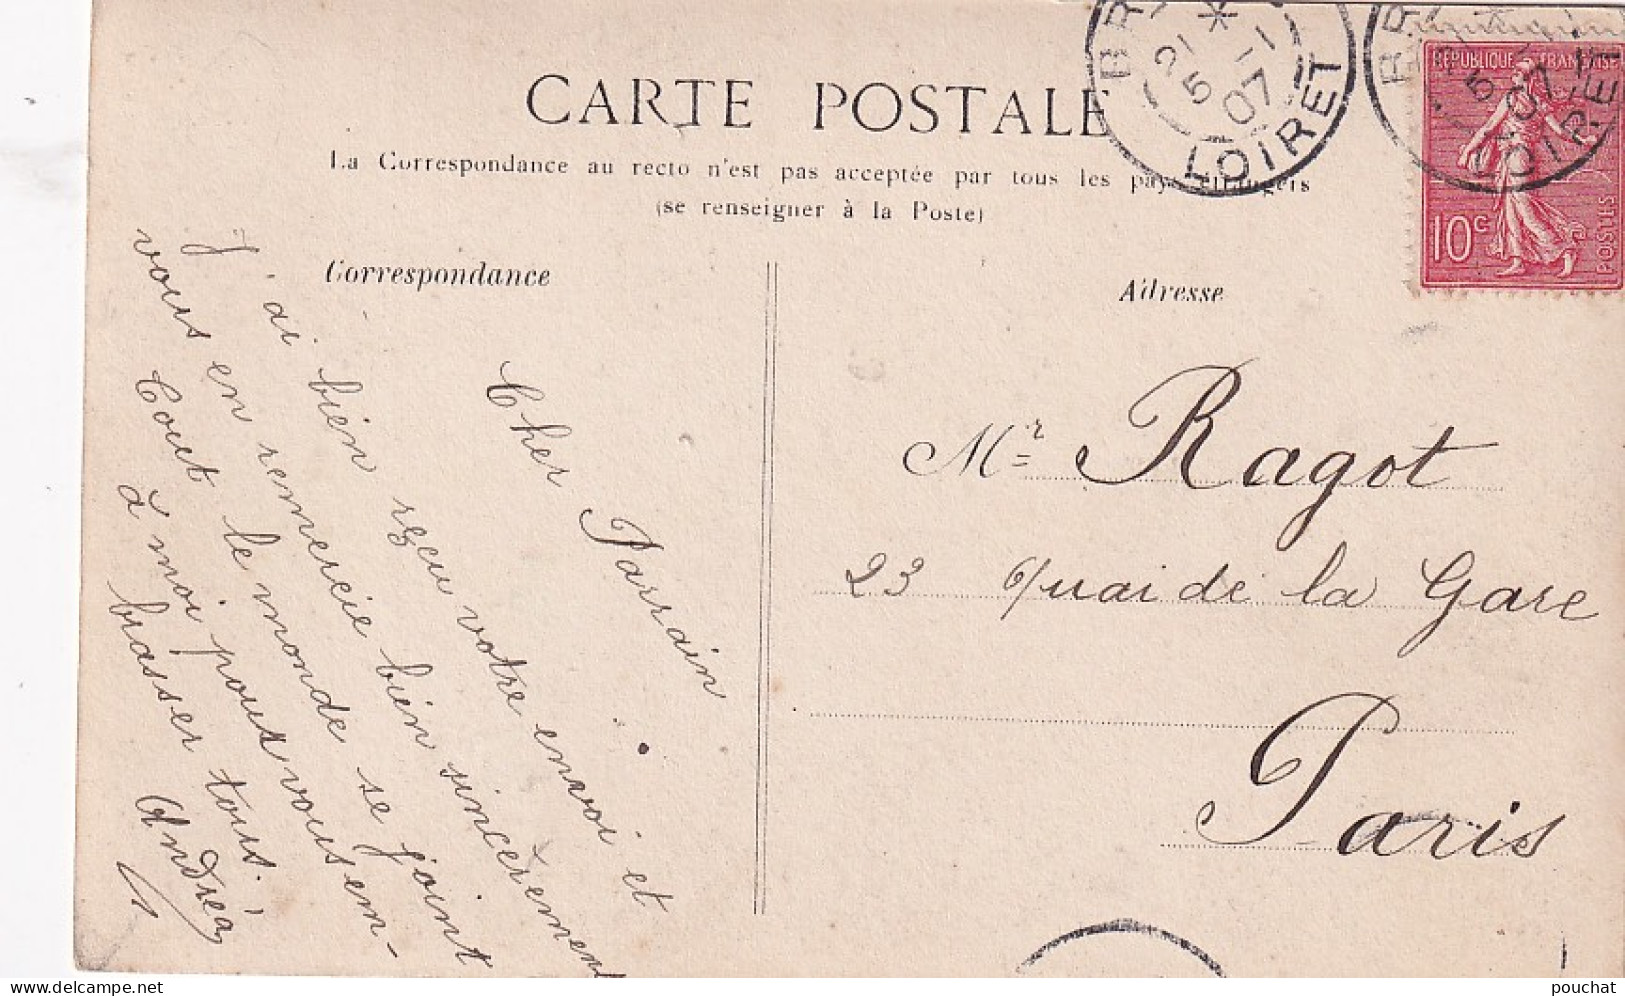 CARTE POSTALE
La Correspondance au recto n'est pas acceptée par tous les pays étrangers
(se renseigner à la Poste)
Correspondance
Adresse
Cher Parrain
J'ai bien reçu votre envoi et
vous en remercie bien sincèrement
Tout le monde se joint
à moi pour vous em-
brasser tous.
Andréa
Mr Ragot
23 Quai de la Gare
Paris
RÉPUBLIQUE FRANÇAISE
10c
POSTES
21 *
5 -1
07
LOIRET
5
07
LOIRET
pouchat